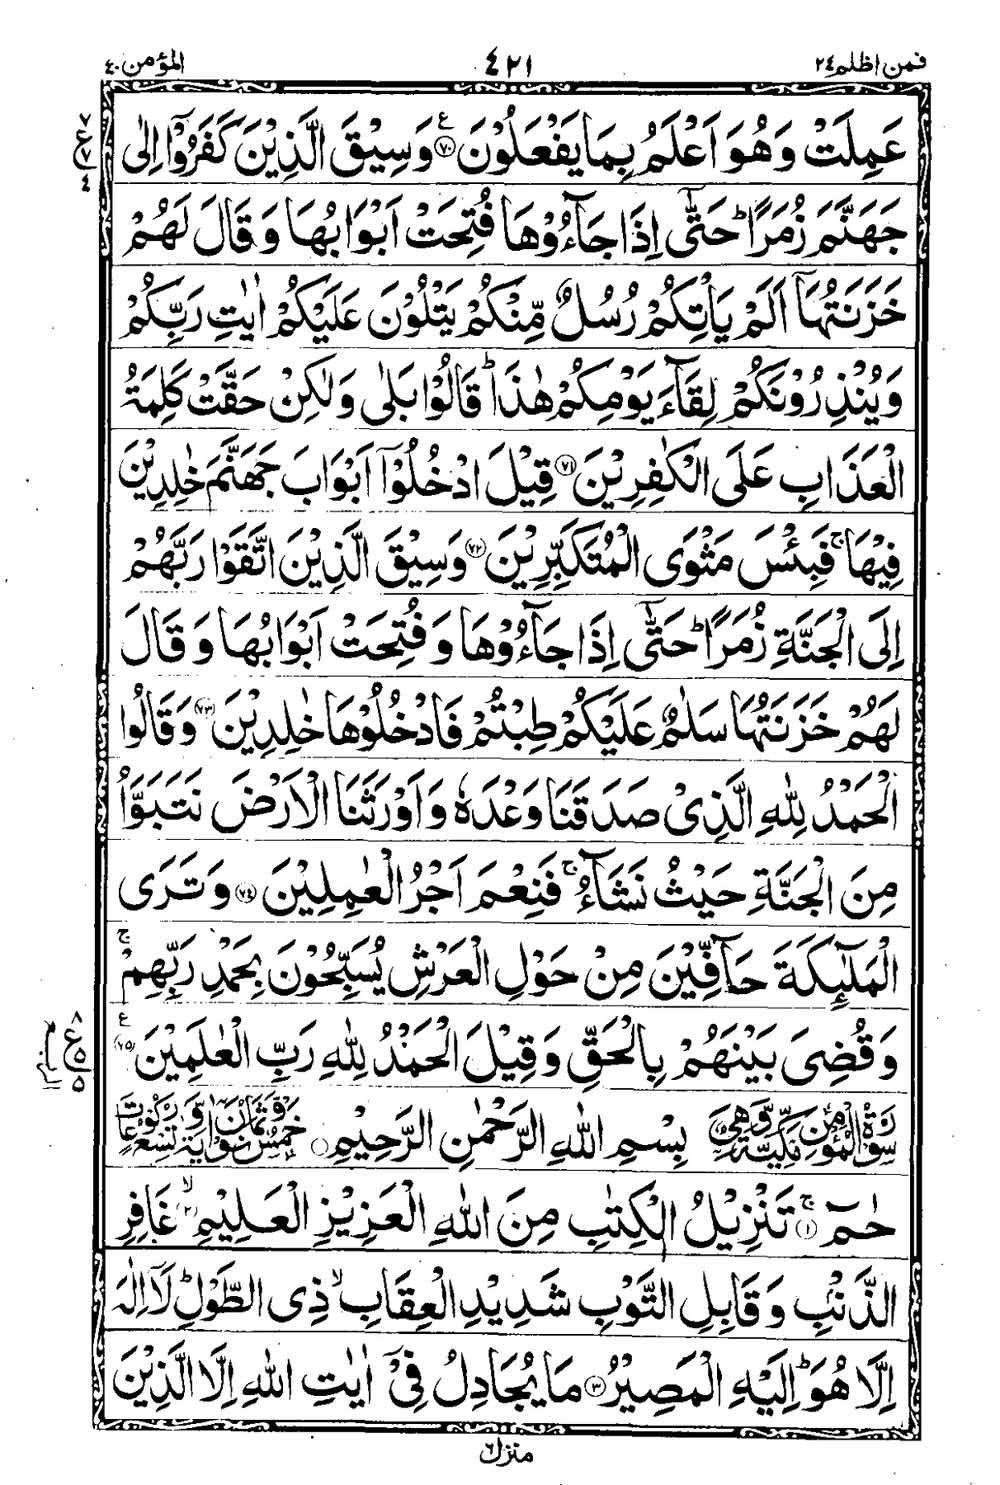 فمن اظلم ٢٤ ٤٢١ المؤمن ٤٠
عَمِلَتْ وَهُوَ اَعْلَمُ بِمَا يَفْعَلُوْنَ ﴿٧٠﴾ ع وَسِيْقَ الَّذِيْنَ كَفَرُوْۤا اِلٰى
جَهَنَّمَ زُمَرًا ؕ حَتّٰۤى اِذَا جَآءُوْهَا فُتِحَتْ اَبْوَابُهَا وَقَالَ لَهُمْ
خَزَنَتُهَاۤ اَلَمْ يَاْتِكُمْ رُسُلٌ مِّنْكُمْ يَتْلُوْنَ عَلَيْكُمْ اٰيٰتِ رَبِّكُمْ
وَيُنْذِرُوْنَكُمْ لِقَآءَ يَوْمِكُمْ هٰذَا ؕ قَالُوْا بَلٰى وَلٰكِنْ حَقَّتْ كَلِمَةُ
الْعَذَابِ عَلَى الْكٰفِرِيْنَ ﴿٧١﴾ قِيْلَ ادْخُلُوْۤا اَبْوَابَ جَهَنَّمَ خٰلِدِيْنَ
فِيْهَا ۚ فَبِئْسَ مَثْوَى الْمُتَكَبِّرِيْنَ ﴿٧٢﴾ وَسِيْقَ الَّذِيْنَ اتَّقَوْا رَبَّهُمْ
اِلَى الْجَنَّةِ زُمَرًا ؕ حَتّٰۤى اِذَا جَآءُوْهَا وَفُتِحَتْ اَبْوَابُهَا وَقَالَ
لَهُمْ خَزَنَتُهَا سَلٰمٌ عَلَيْكُمْ طِبْتُمْ فَادْخُلُوْهَا خٰلِدِيْنَ ﴿٧٣﴾ وَقَالُوا
الْحَمْدُ لِلّٰهِ الَّذِيْ صَدَقَنَا وَعْدَهٗ وَاَوْرَثَنَا الْاَرْضَ نَتَبَوَّاُ
مِنَ الْجَنَّةِ حَيْثُ نَشَآءُ ۚ فَنِعْمَ اَجْرُ الْعٰمِلِيْنَ ﴿٧٤﴾ وَتَرَى
الْمَلٰٓئِكَةَ حَآفِّيْنَ مِنْ حَوْلِ الْعَرْشِ يُسَبِّحُوْنَ بِحَمْدِ رَبِّهِمْ ۚ
وَقُضِىَ بَيْنَهُمْ بِالْحَقِّ وَقِيْلَ الْحَمْدُ لِلّٰهِ رَبِّ الْعٰلَمِيْنَ ﴿٧٥﴾ ع
سُوْرَةُ الْمُؤْمِنِ مَكِّيَّةٌ وَّهِيَ بِسْمِ اللّٰهِ الرَّحْمٰنِ الرَّحِيْمِ خَمْسٌ وَّثَمَانُوْنَ اٰيَةً وَّتِسْعُ رُكُوْعَاتٍ
حٰمٓ ﴿١﴾ ۚ تَنْزِيْلُ الْكِتٰبِ مِنَ اللّٰهِ الْعَزِيْزِ الْعَلِيْمِ ﴿٢﴾ ۙ غَافِرِ
الذَّنْۢبِ وَقَابِلِ التَّوْبِ شَدِيْدِ الْعِقَابِ ۙ ذِى الطَّوْلِ ؕ لَاۤ اِلٰهَ
اِلَّا هُوَ ؕ اِلَيْهِ الْمَصِيْرُ ﴿٣﴾ مَا يُجَادِلُ فِيْۤ اٰيٰتِ اللّٰهِ اِلَّا الَّذِيْنَ
منزل ٦